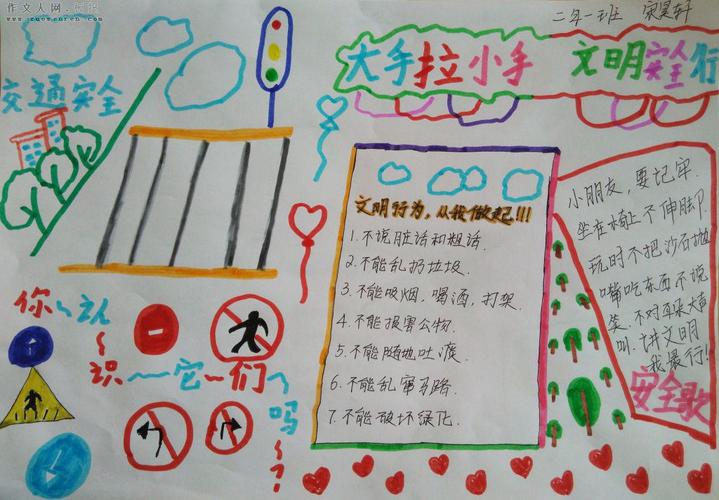 作文人网·标记
www.zuowenren.com
二年一班 宋昊轩
交通安全
大手拉小手 文明安全行
文明行为，从我做起!!!
1.不说脏话和粗话.
2.不能乱扔垃圾.
3.不能吸烟，喝酒，打架.
4.不能损害公物.
5.不能随地吐痰
6.不能乱窜马路.
7.不能破坏绿化.
小朋友，要记牢.
坐在椅上不伸脚
玩时不把沙石抛
嘴吃东西不说
笑.不对耳朵大声
叫.讲文明
我最行!
安全歌
你认
识它们
吗?